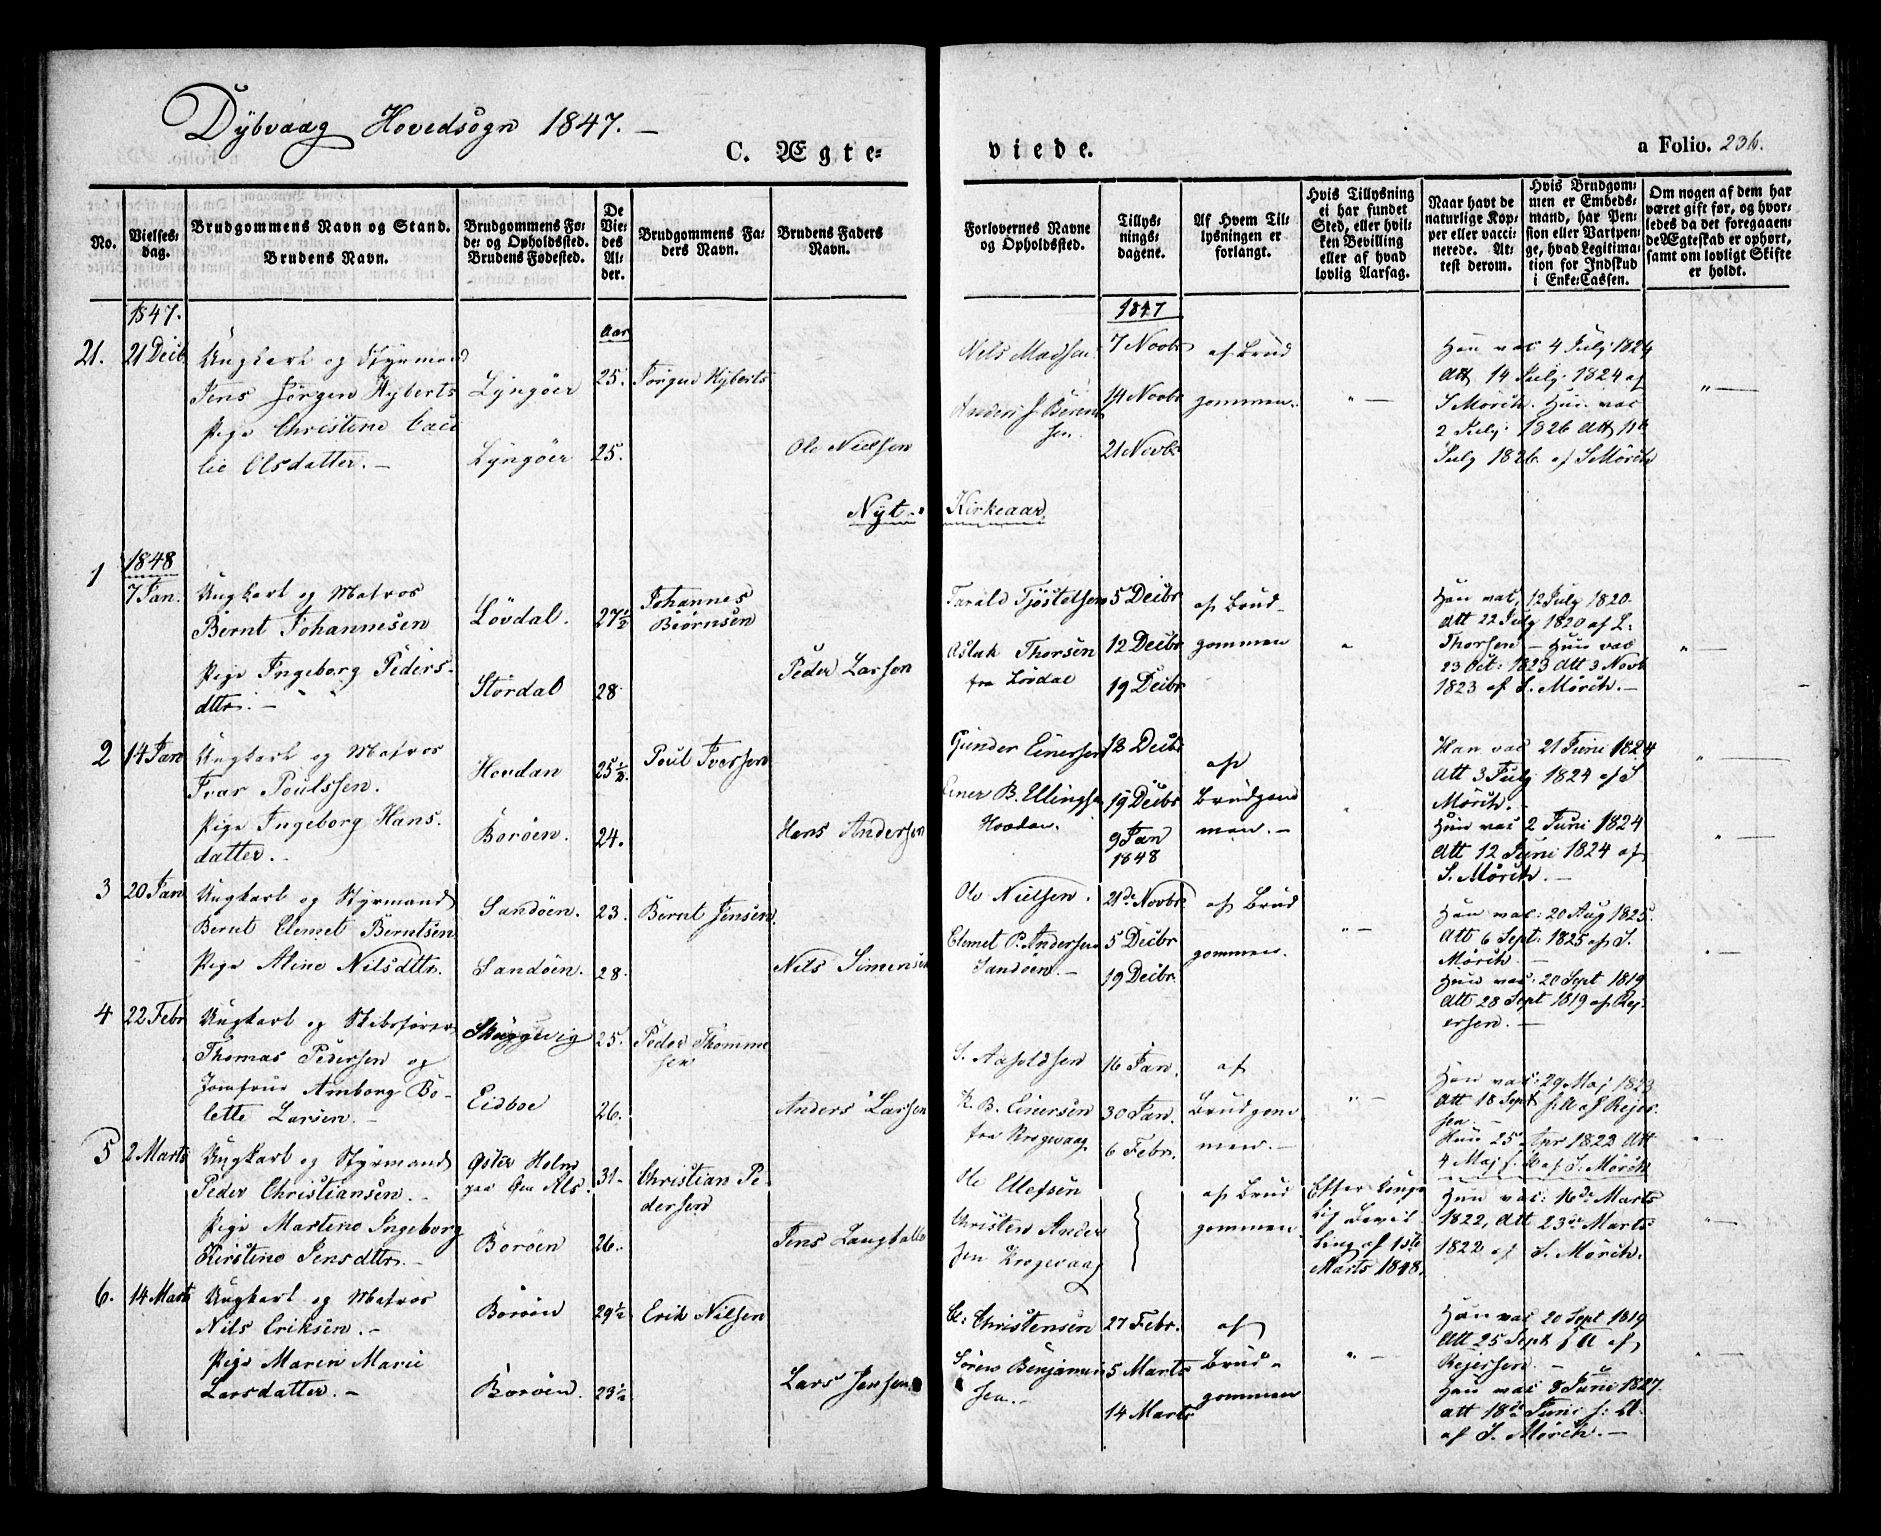 Dybvaag Hovedsogn 1847. —
C. Ægte= viede.
a Folio. 236.
No.
Vielses= dag.
Brudgommens Navn og Stand.
Brudens Navn.
Brudgommens Fø= de- og Opholdssted.
Brudens Fødested.
De Vie= des Al= der.
Brudgommens Fa= ders Navn.
Brudens Faders Navn.
Forlovernes Navne og Opholdssted.
Tillys= nings= dagene.
Af Hvem Til= lysningen er forlangt.
Hvis Tillysning ei har fundet Sted, eller hvil= ken Bevilling eller af hvad lovlig Aarsag.
Naar havt de naturlige Kop= per eller vacci= nerede. At= test derom.
Hvis Brudgom= men er Embeds= mand, har Pen= sion eller Vartpen= ge, hvad Legitima= tion for Indskud i Enke-Cassen.
Om nogen af dem har været gift før, og hvor= ledes da det foregaaen= de Ægteskab er ophørt, samt om lovligt Skifte er holdt.
1847.
Aar
1847
21. 21 Decb Ungkarl og Styrmand
Jens Jörgen Hyberts
Lyngöer 25. Jörgen Hyberts
Pige Christine Caci
lie Olsdatter. —
Lyngöer 25. Ole Nielsen
Nils Madsen
Anders J. Berent
sen.
7 Novbr
14 Novbr
21 Novbr
af Brud
gommen.
" —
Han vac 4 Julj 1824
Att 14 Julj 1824 af
S Mörch. Hun vac
2 Julj 1826 Att 11te
Julj 1826 af S Mörch
" —
Nyt Kirkeaar
1848
1 7 Jan. Ungkarl og Matros
Bernt Johannesen
Lövdal. 27½ Johannes
Biörnsen
Pige Ingeborg Peders-
dttr. —
Stördal 28 Peder Larsen
Tarald Tjöstolsen
Aslak Thorsen
fra Lövdal
5 Decbr
12 Decbr
19 Decbr
af Brud-
gommen
"
Han vac, 12 July 1820
Att 22 July 1820 af L.
Thorsen — Hun vac
23 Oct: 1823 Att 3 Novb
1823 af S. Mörch. —
" —
2 14 Jan Ungkarl og Matros
Ivar Poulssen.
Hovdan 25½ Poul Iversen
Pige Ingeborg Hans.
datter. —
Boröen. 24. Hans Andersen
Gunder Einersen
Einer B. Ellingse
Hovdan.
12 Decbr
19 Decbr
9 Jan
1848
af
Brudgom
men. —
"
Han vac 21 Juni 1824
Att 3 Julj 1824 af S
Mörch.
Hun vac 2 Juni 1824
Att 12 Juni 1824 af
S. Mörch. —
" —
3 20 Jan Ungkarl og Styrmand
Bernt Clemet Berntsen
Sandöen. 23. Bernt Jensen
Pige Aline Nilsdttr.
Sandöen. 28. Nils Simensen
Ole Nielsen.
Clemet P. Andersen
Sandöen. —
21de Novbr.
5 Decbr
19 Decbr
af Brud
gommen.
" —
Han vac: 20 Aug 1825.
Att 6 Sept: 1825 af S.
Mörch. —
Hun vac: 20 Sept 1819
Att 28 Sept 1819 af Rej
ersen. —
" —
4 22 Febr Ungkarl og Skibsförer
Thomas Pedersen og
Skuggevig 25. Peder Thomme
sen
Jomfrue Amborg Bo-
lette Larsen. —
Eidboe 26. Anders Larsen
S. Aasoldsen
K. B. Einersen
fra Krogevaag
16 Jan.
30 Jan.
6 Febr.
af
Brudgom
men. —
" —
Han vac: 29 Maj 1823
Att 18 Sept s: A af Rejer
sen. —
Hun 25 Apr 1823 Att
4 Maj s. A af S. Mörch
" —
5 2 Marts Ungkarl og Styrmand
Peder Christiansen. —
Öster Holm
paa Öen Als. 31- Christian Pe
dersen
Pige Martine Ingeborg
Kirstine Jensdttr. —
Boröen 26. Jens Langballe
Ole Ellefsen
Christen Ander
sen Krogevaag
af Brud
gommen.
Efter Konge
lig Bevil
ling af 1ste
Marts 1848.
Hun vac: 16de Marts
1822, Att 23de Marts
1822 af S. Mörch.
" —
6. 14 Marts Ungkarl og Matros
Nils Eriksen. —
Boröen 29½ Erik Nilsen
Pige Maren Marie
Larsdatter. —
Boröen. 23½ Lars Jensen
C: Christensen
Sörens Benjamin
sen. —
27 Febr.
5 Marts
14 Marts
af
Brud-
gommen
" —
Han vac: 20 Sept 1819
Att 25 Sept s A af
Rejersen. —
Hun vac 8 Juni 1827.
Att 18de Juni s: A.
af S. Mörch. —
" —